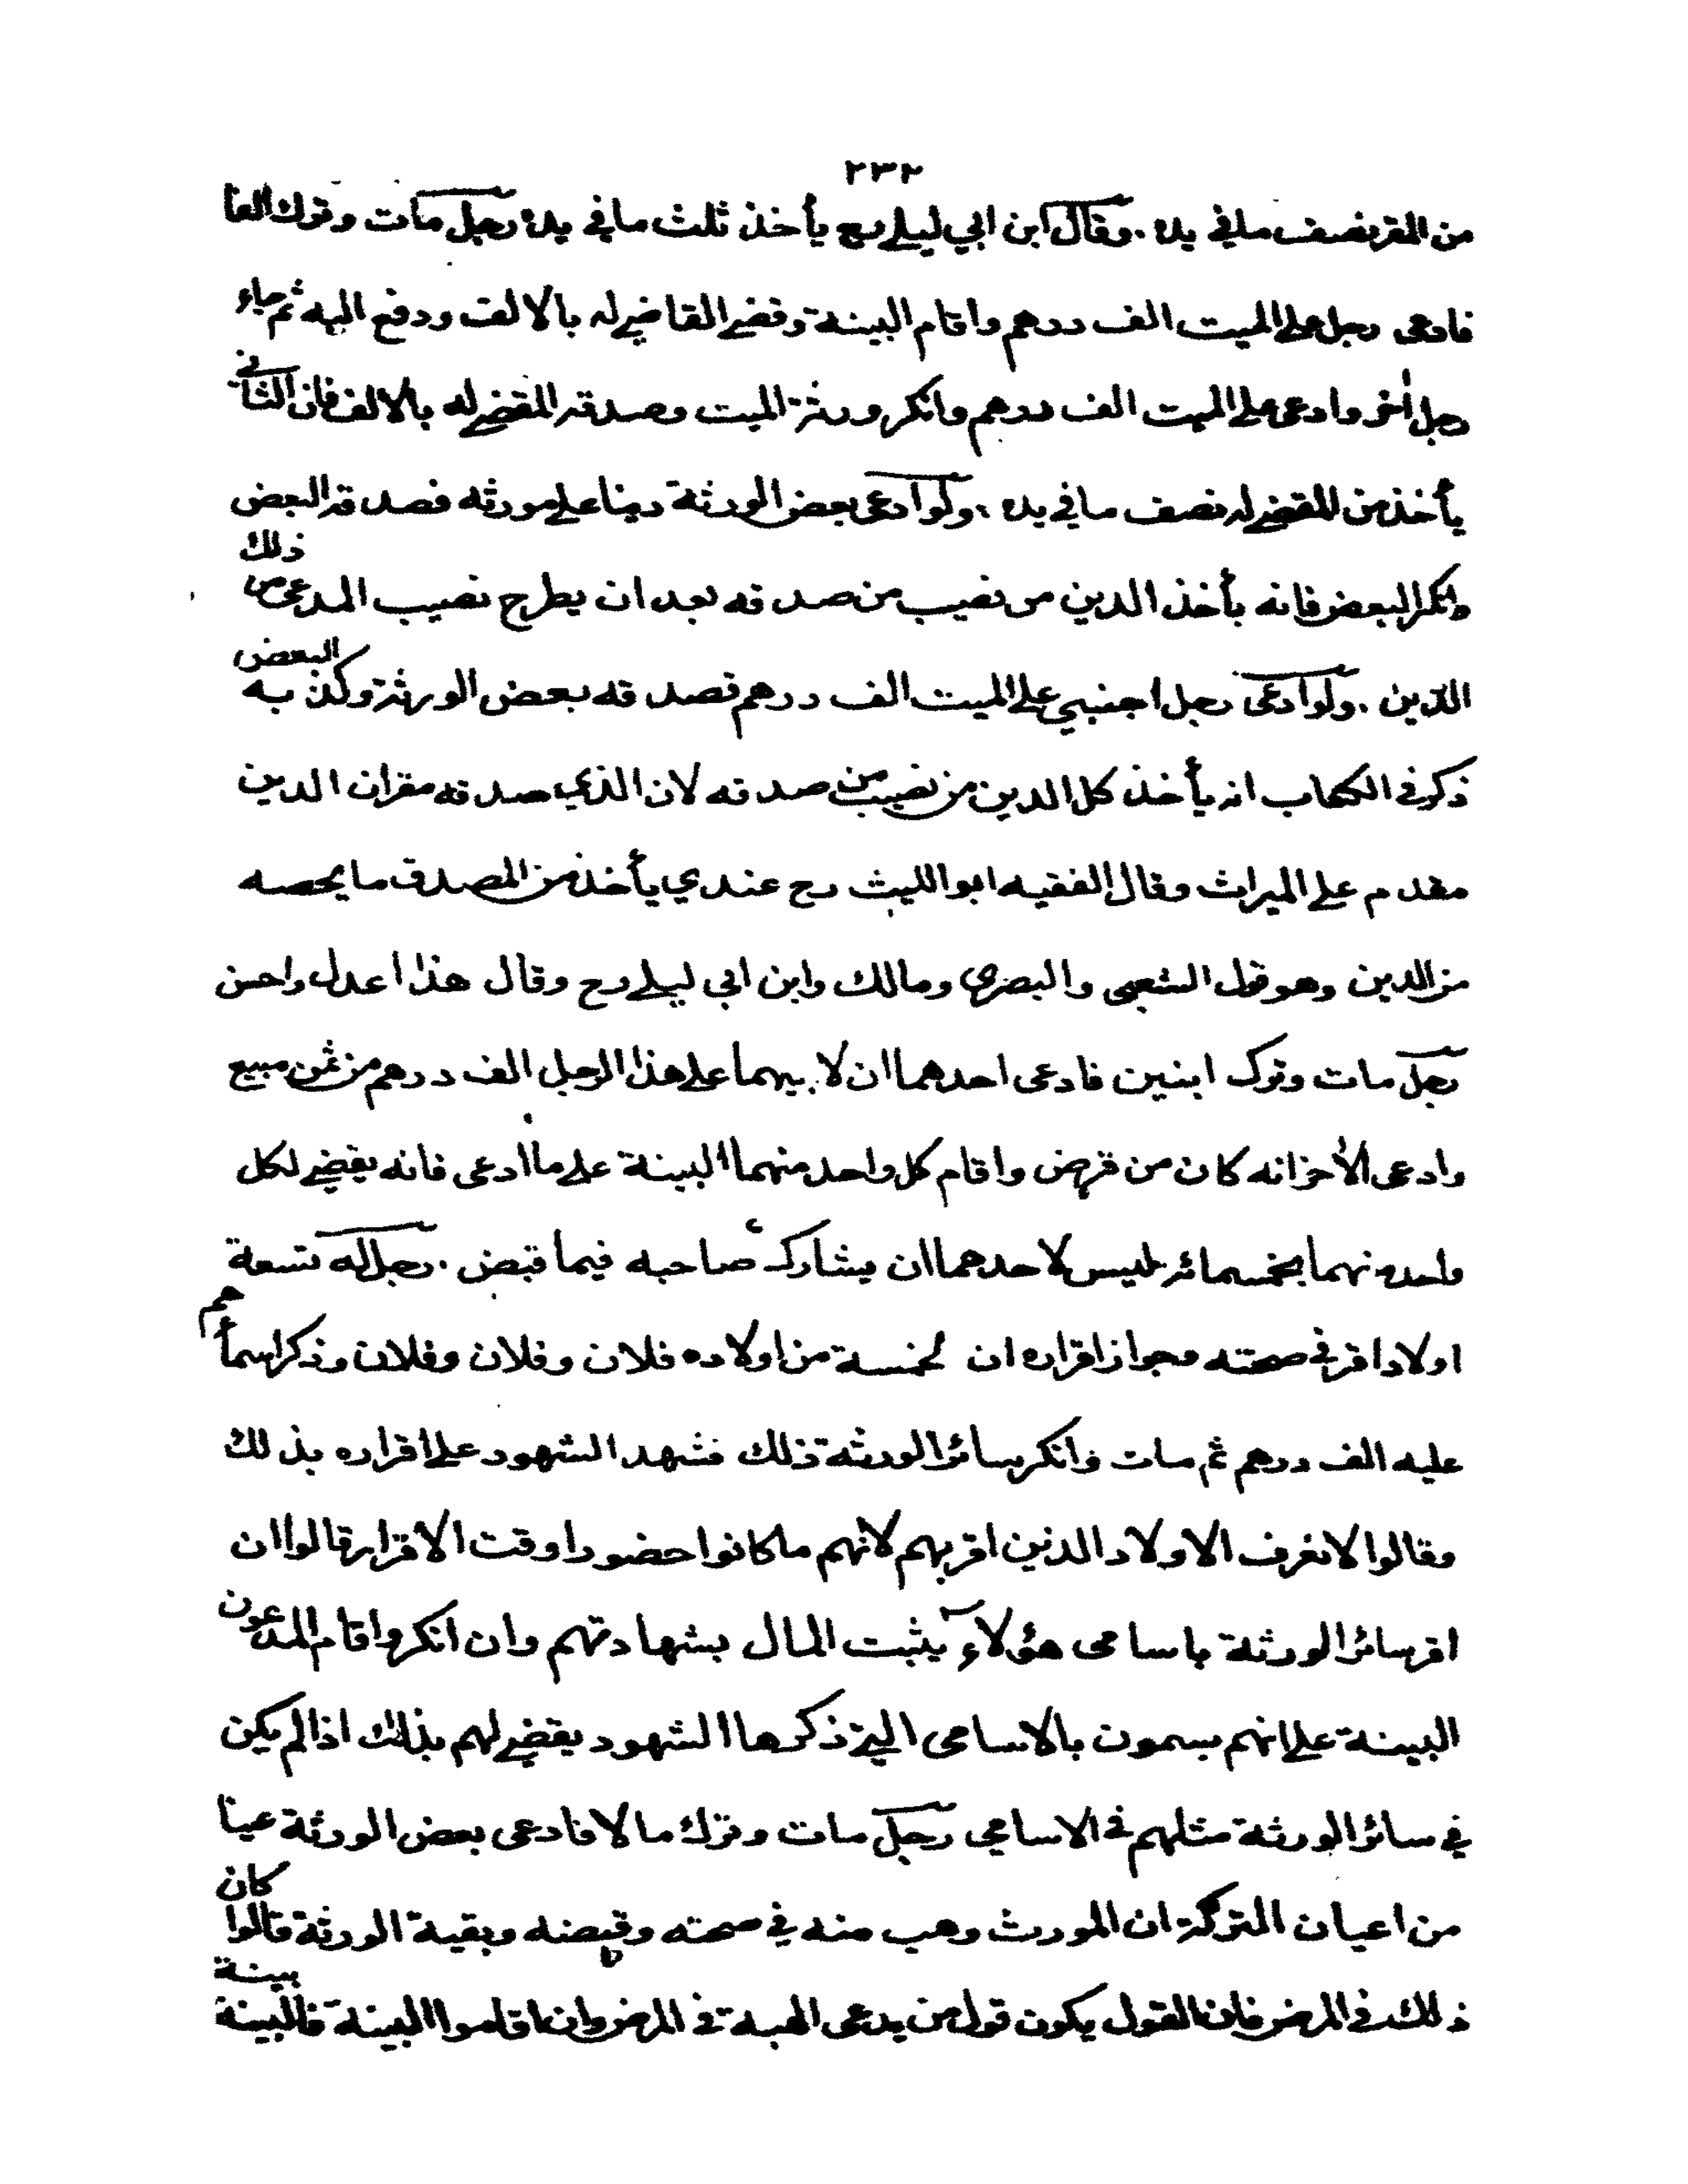 ٢٣٢
من المقر نصف ما في يده . وقال ابن ابي ليلى رح يأخذ ثلث ما في يده رجل مات وترك الفا
فادعى رجل على الميت الف درهم واقام البينة وقضى القاضي له بالالف ودفع اليه ثم جاء
رجل أخر وادعى على الميت الف درهم وانكر ورثة الميت وصدقه المقضي له بالالف فان الثاني
يأخذ من المقضي له نصف ما في يده ، ولو ادعى بعض الورثة دينا على مورثه فصدقه البعض
وانكر البعض فانه يأخذ الدين من نصيب من صدقه بعد ان يطرح نصيب المدعى من ذلك
الدين . ولو ادعى رجل اجنبي على الميت الف درهم فصدقه بعض الورثة وكذبه البعض
ذكر في الكتاب انه يأخذ كل الدين من نصيب من صدقه لان الذي صدقه مقر ان الدين
مقدم على الميراث وقال الفقيه ابو الليث رح عندي يأخذ من المصدق ما يخصه
من الدين وهو قول الشعبي والبصري ومالك وابن ابي ليلى رح وقال هذا اعدل واحسن
رجل مات وترك ابنين فادعى احدهما ان لابيهما على هذا الرجل الف درهم من ثمن مبيع
وادعى الأخر انه كان من قرض واقام كل واحد منهما البينة على ما ادعى فانه يقضي لكل
واحد منهما بخمسمائة وليس لاحدهما ان يشارك صاحبه فيما قبض . رجل له تسعة
اولاد اقر في صحته وجواز اقراره ان لخمسة من اولاده فلان وفلان وفلان وذكر اسمأهم
عليه الف درهم ثم مات وانكر سائر الورثة ذلك فشهد الشهود على اقراره بذلك
وقالوا لا نعرف الاولاد الذين اقر بهم لانهم ما كانوا حضورا وقت الاقرار قالوا ان
اقر سائر الورثة باسامى هؤلاء يثبت المال بشهادتهم وان انكروا اقام المدعون
البينة على انهم يسمون بالاسامى التي ذكرها الشهود يقضي لهم بذلك اذا لم يكن
في سائر الورثة مثلهم في الاسامي رجل مات وترك مالا فادعى بعض الورثة عينا
من اعيان التركة ان المورث وهب منه في صحته وقبضه وبقية الورثة قالوا كان
ذلك في المرض فان القول يكون قول من يدعى الهبة في المرض وان اقاموا البينة فالبينة بينة